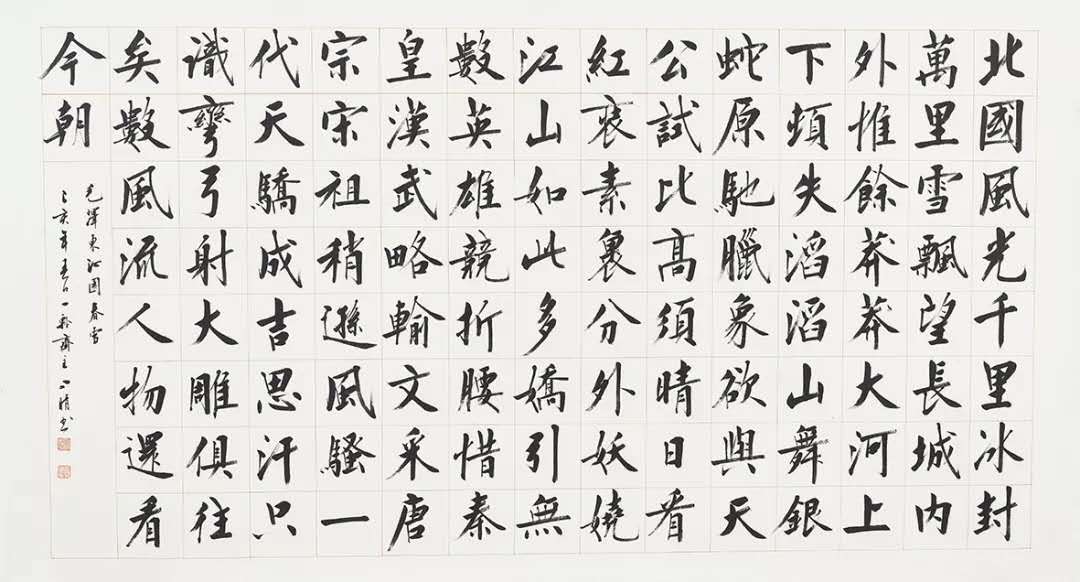 北國風光千里冰封
萬里雪飄望長城內
外惟餘莽莽大河上
下頓失滔滔山舞銀
蛇原馳臘象欲與天
公試比高須晴日看
紅裝素裹分外妖嬈
江山如此多嬌引無
數英雄競折腰惜秦
皇漢武略輸文采唐
宗宋祖稍遜風騷一
代天驕成吉思汗只
識彎弓射大雕俱往
矣數風流人物還看
今朝
毛澤東沁園春雪
己亥年春月一齋主書